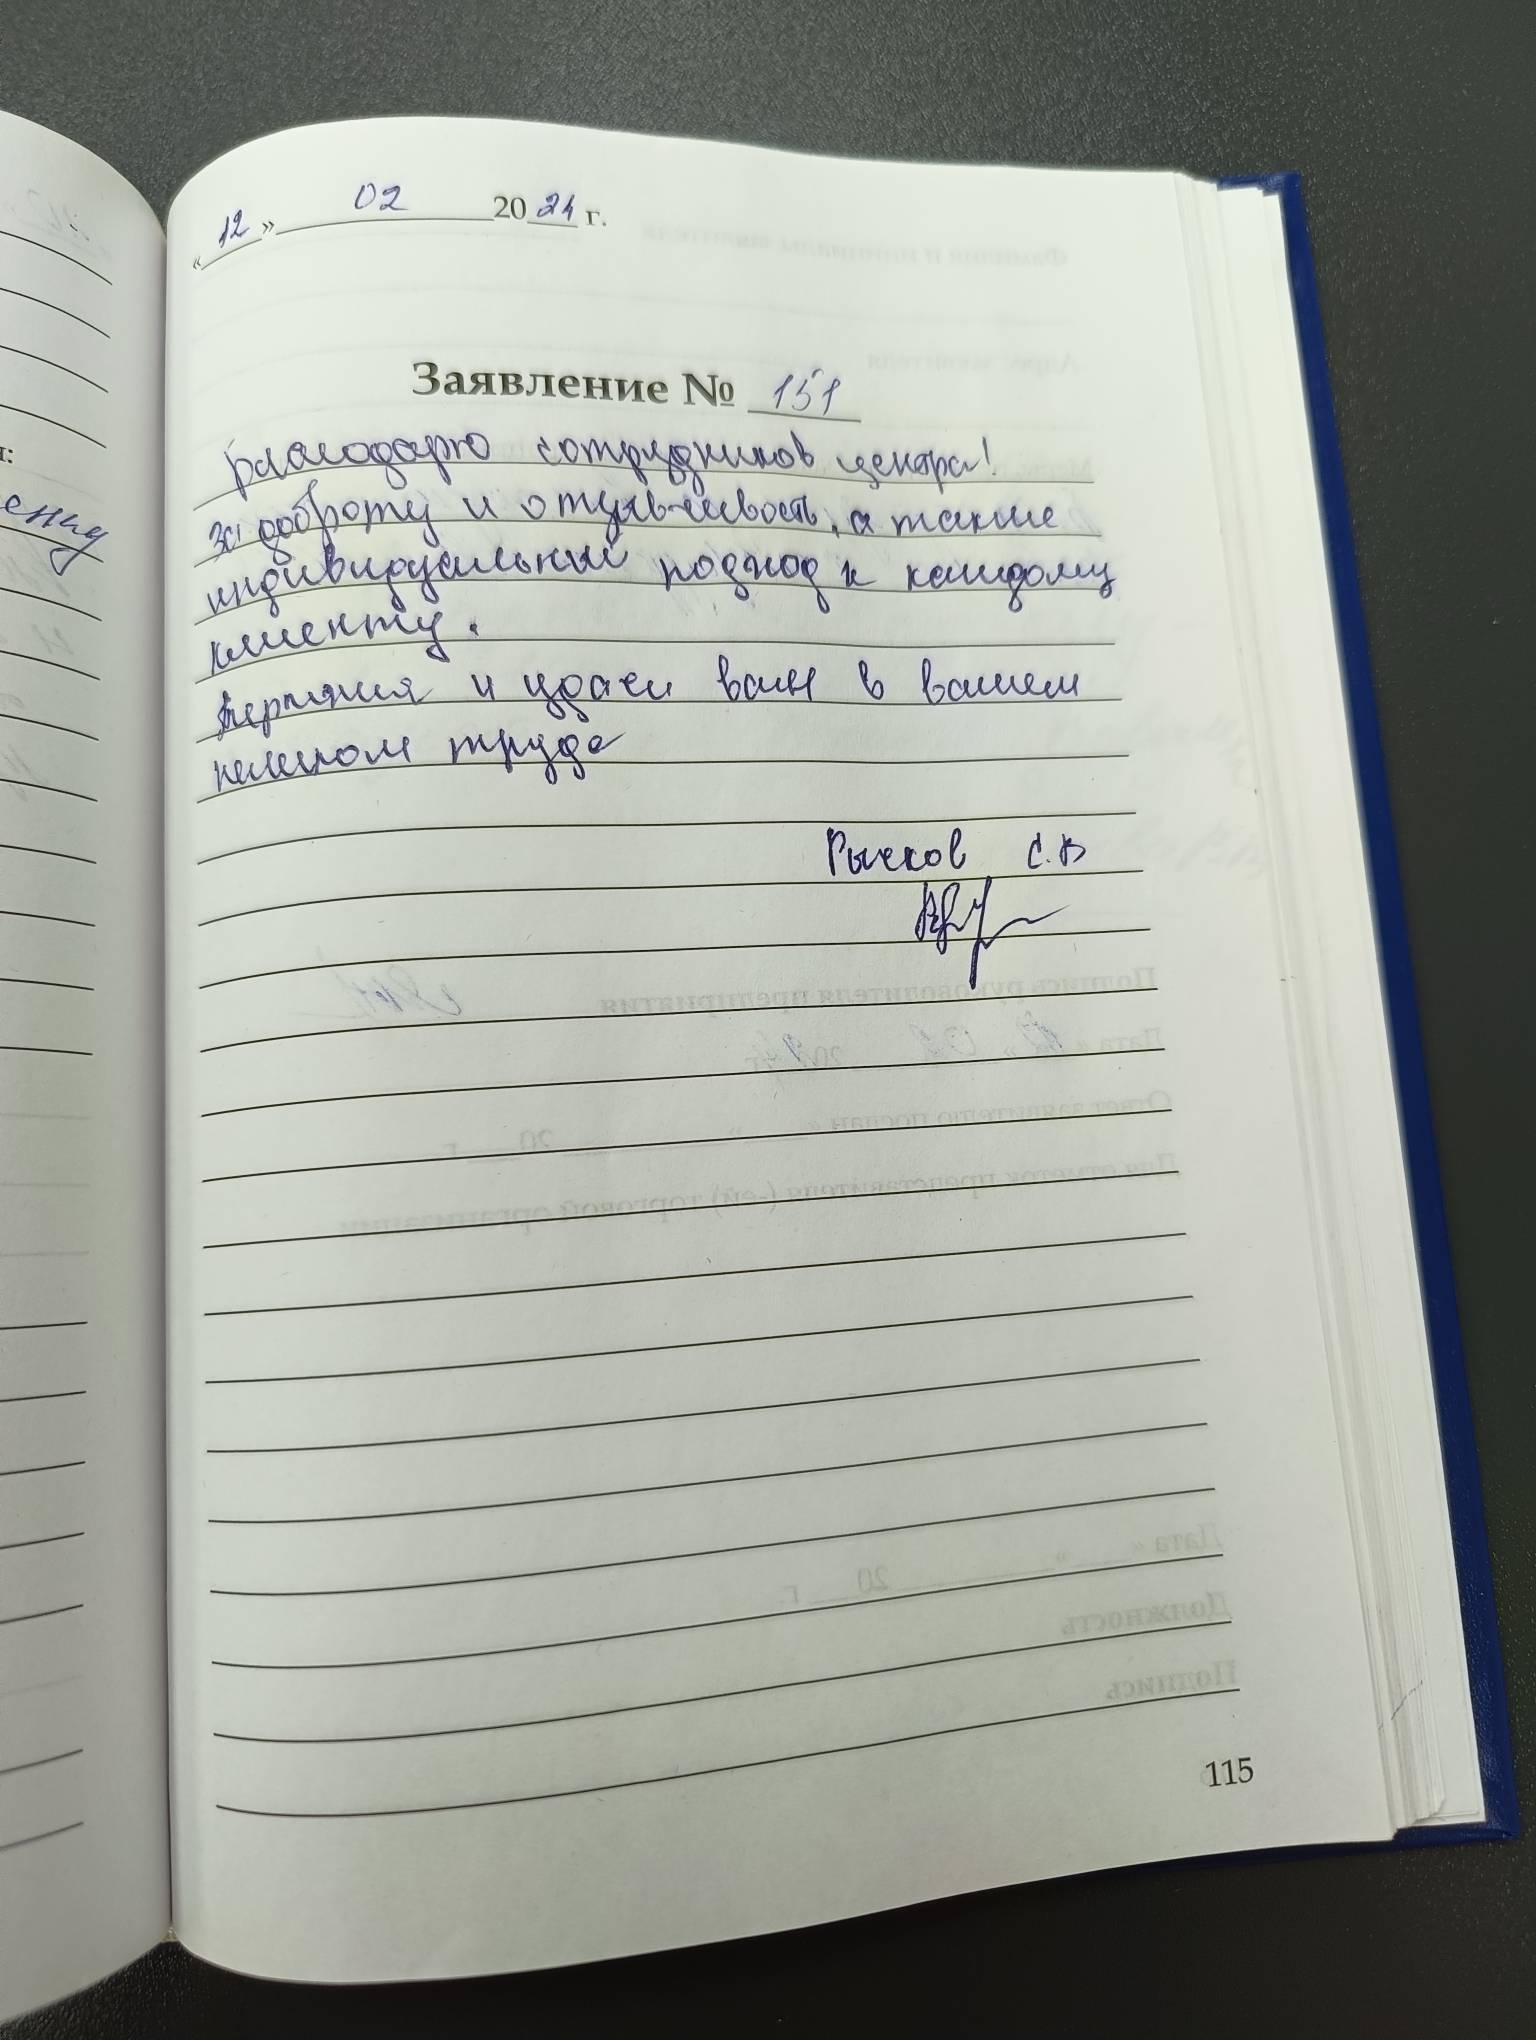 «12» 02 2024 г.
Заявление № 151
Благодарю сотрудников центра!
За доброту и отзывчивость, а также
индивидуальный подход к каждому
клиенту.
Терпения и удачи вам в вашем
нелегком труде
Рычков С.В
115